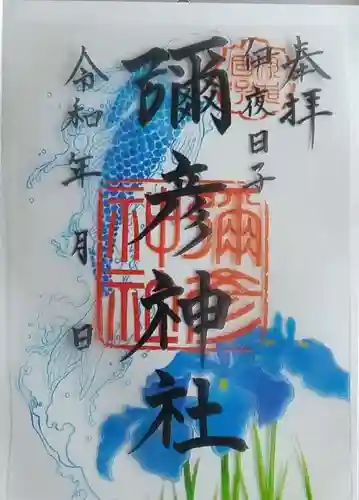 奉拝
伊夜日子
彌彦神社
令和 年 月 日
彌彦
神社